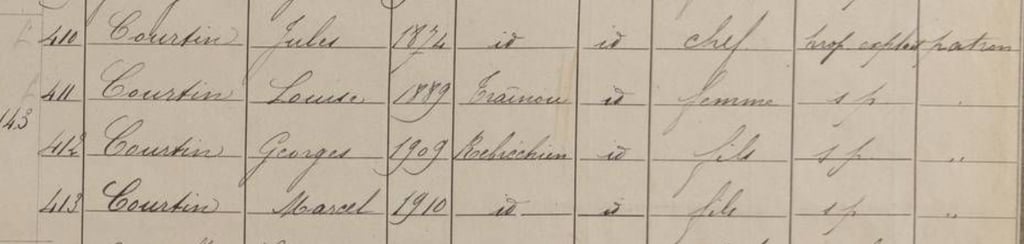 410 Courtin Jules 1874 id id chef prop exploit patron
411 Courtin Louise 1889 Traînou id femme s p "
143
412 Courtin Georges 1909 Rebréchien id fils s p "
413 Courtin Marcel 1910 id id fils s p "